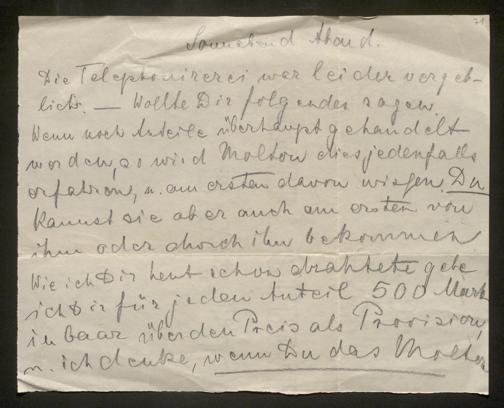 71
Sonnabend Abend.
Die Telephonirerei war leider vergeb-
lich. — Wollte Dir folgendes sagen.
Wenn noch Anteile überhaupt gehandelt
worden, so wird Molton dies jedenfalls
erfahren, u. am ersten davon wissen. Du
kannst sie aber auch am ersten von
ihm oder durch ihn bekommen
Wie ich Dir heut schon drahtete gebe
ich Dir für jeden Anteil 500 Mark
in baar über den Preis als Provision,
u. ich denke, wenn Du das Molton